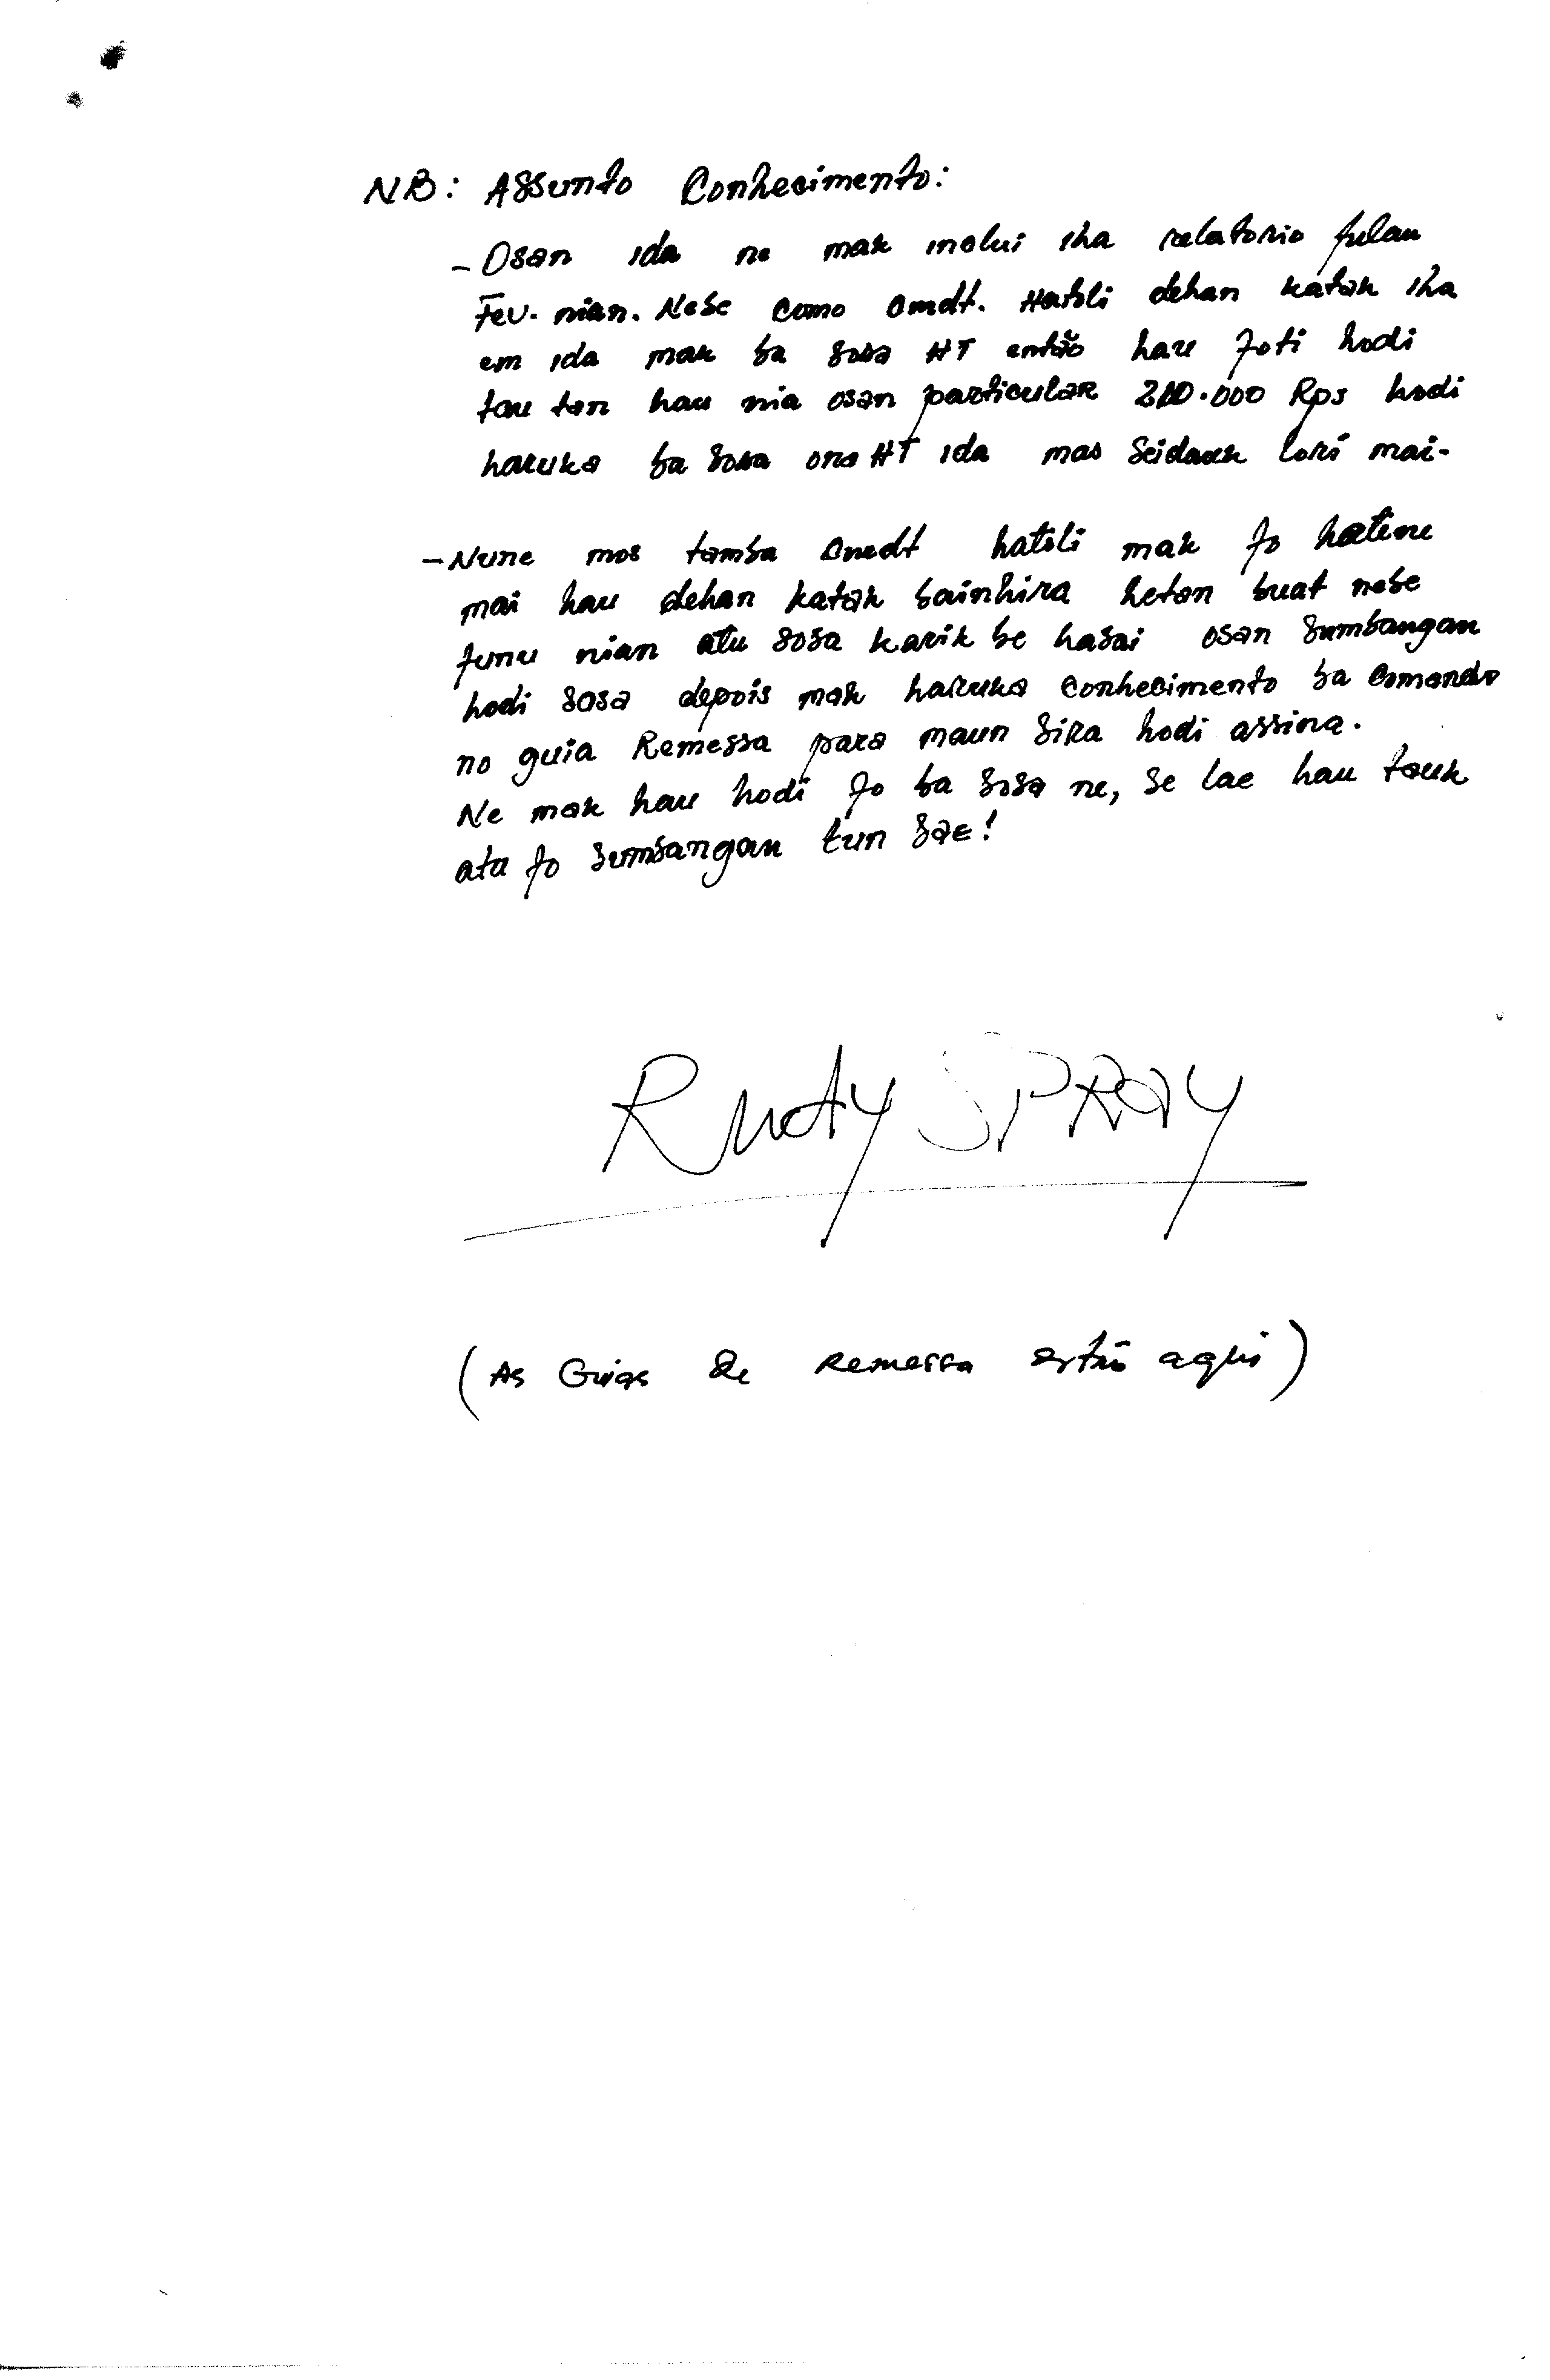 NB: Assunto Conhecimento:
- Osan ida ne mak inclui iha relatorio fulan
Fev. nian. Nebe como Cmdt. Hatoli dehan katak iha
em ida mak ba sosa HT então hau foti hodi
tau tan hau nia osan particular 210.000 Rps hodi
haruka ba sosa ona HT ida mas seidauk lori mai.
- Nune mos tamba Cmdt hatoli mak fo hatene
mai hau dehan katak bainhira hetan buat nebe
funu nian atu sosa karik be hasai osan sumbangan
hodi sosa depois mak haruka conhecimento ba comando
no guia Remessa para maun sira hodi assina.
Ne mak hau hodi fo ba sosa ne, se lae hau tauk
atu fo sumbangan tun sae!
Rudy SPRAY
(As Guias de Remessa estão aqui)